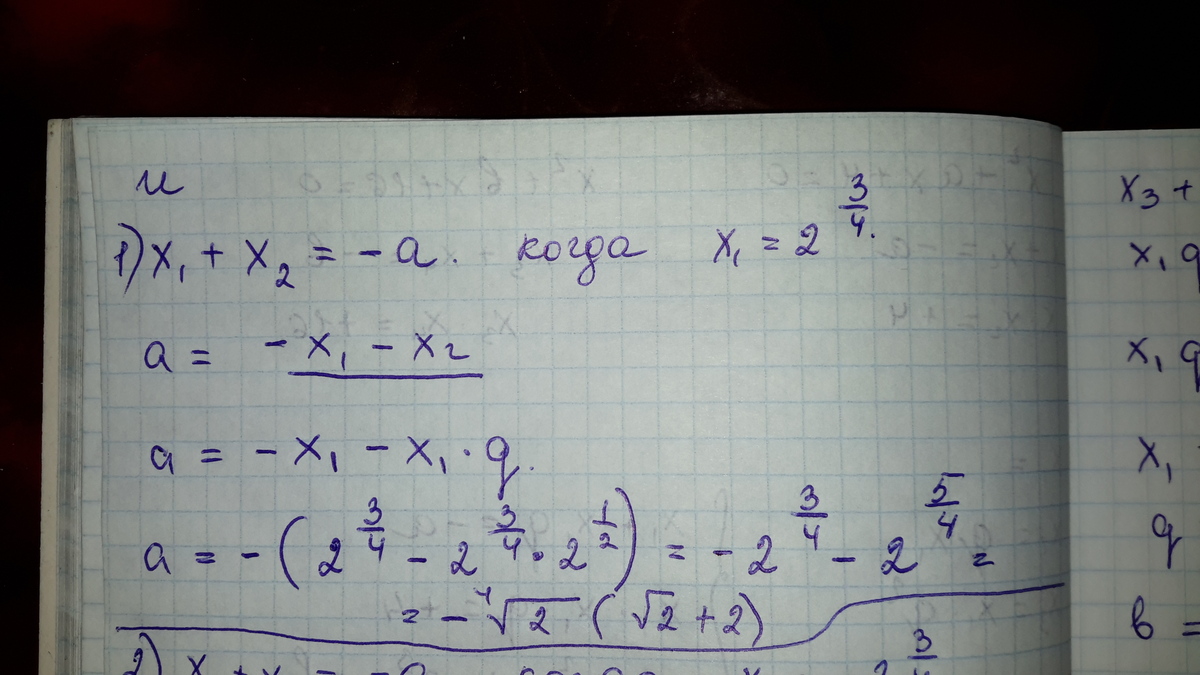 и
1) x₁ + x₂ = - a. когда x₁ = 2^(3/4).
a = - x₁ - x₂
a = - x₁ - x₁ · q.
a = - (2^(3/4) - 2^(3/4) · 2^(1/2)) = - 2^(3/4) - 2^(5/4) =
= - ⁴√2 (√2 + 2)
2) x + x = - a когда x 2^(3/4)
x₃ +
x₁ q
x₁ q
x₁
q
b =